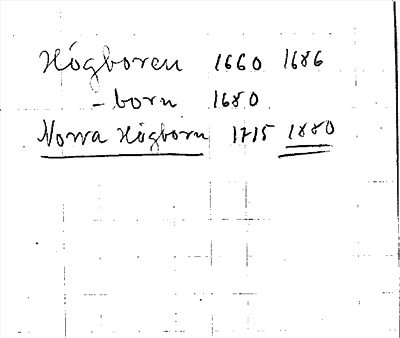 Högboren 1660 1686
- born 1680
Norra Högborn 1715 1880